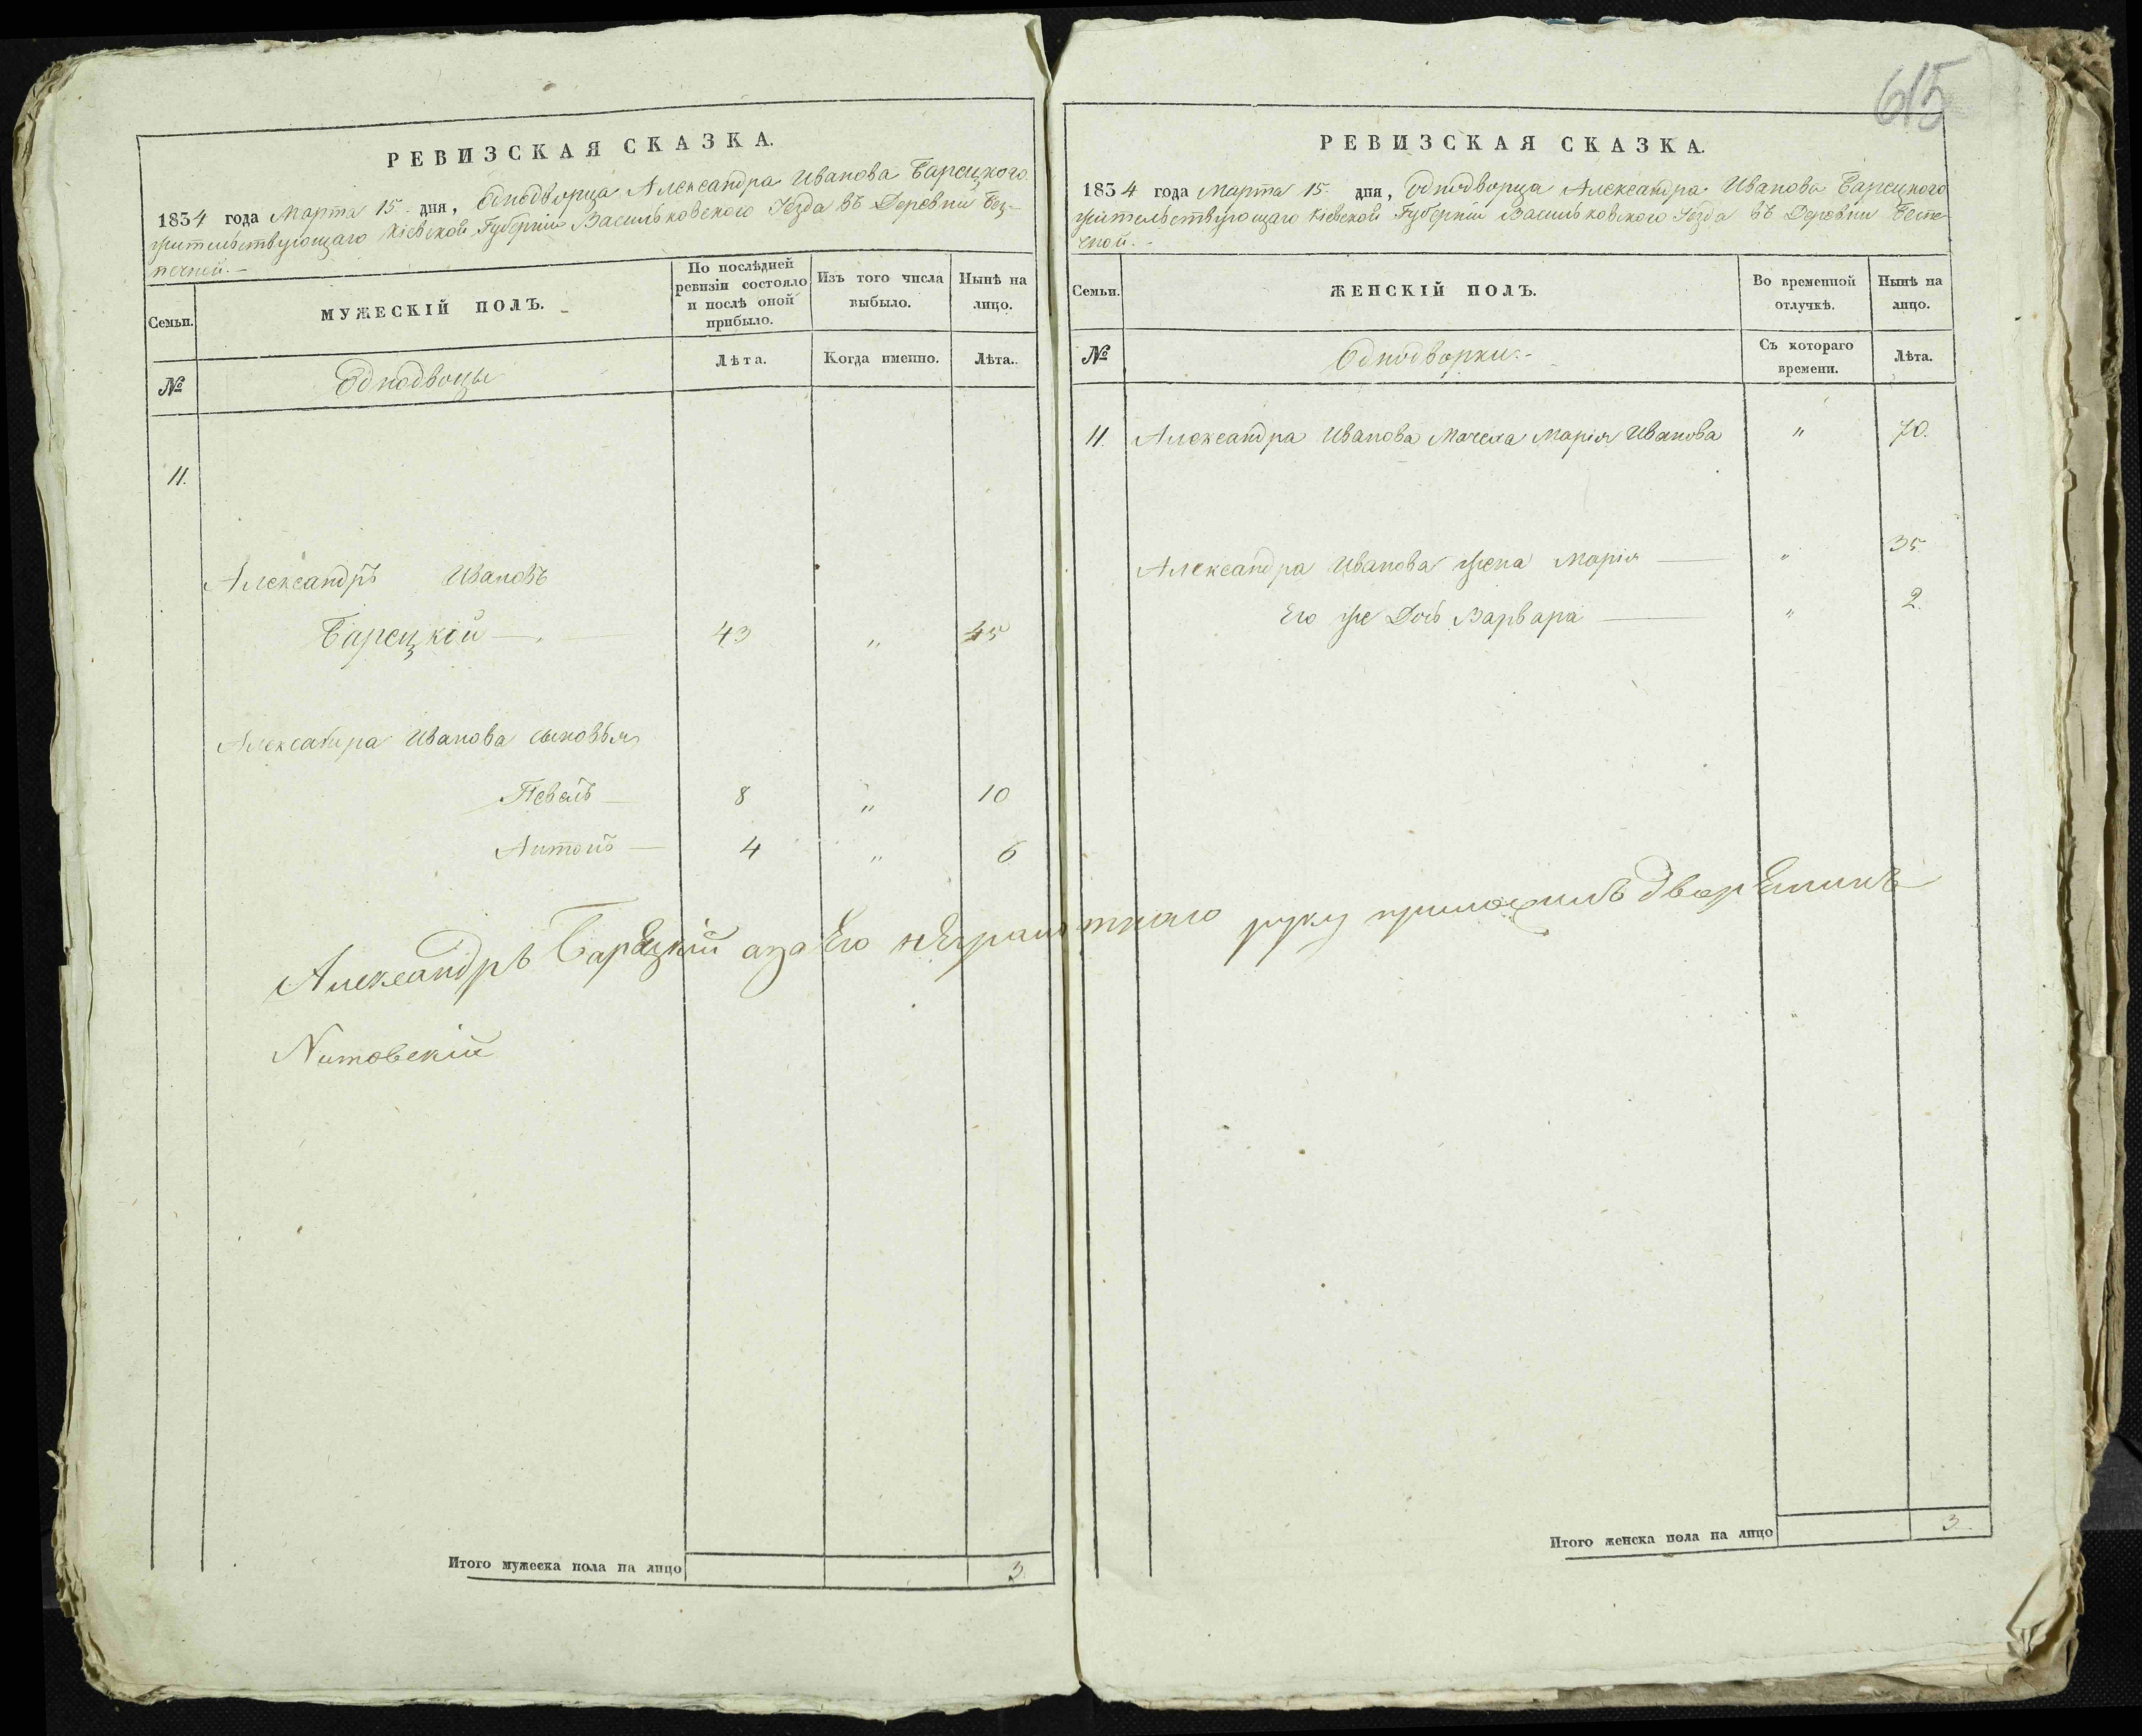 615
РЕВИЗСКАЯ СКАЗКА.
1834 года Марта 15. дня, Однодворца Александра Иванова Барецкого
жительствующаго Кіевской Губерніи Васильковского Уезда въ Деревни Без-
печней.—
Семьи.
МУЖЕСКІЙ ПОЛЪ.
По послѣдней
ревизіи состояло
и послѣ оной
прибыло.
Изъ того числа
выбыло.
Нынѣ на
лицо.
№
Однодворцы
Лѣта.
Когда именно.
Лѣта.
11.
Александръ Ивановъ
Барецкой — 43 " 45
Александра Иванова сыновья
Павелъ — 8 " 10
Антонъ — 4 " 6
Александръ Барецкій а за Его нЕграмотнаго руку приложилъ дворЕнинъ
Итого мужеска пола на лицо 3.
РЕВИЗСКАЯ СКАЗКА.
1834 года Марта 15. дня, Однодворца Александра Иванова Барецкого
жительствующаго Кіевской Губерніи Васильковского Уезда въ Деревни Беспе-
чной.-
Семьи.
ЖЕНСКІЙ ПОЛЪ.
Во временной
отлучкѣ.
Нынѣ на
лицо.
№
Однодворки.-
Съ котораго
времени.
Лѣта.
11. Александра Иванова Мачеха Марія Иванова " 70.
Александра Иванова жена Марія — " 35.
Его же Дочь Варвара — " 2.
Итого женска пола на лицо 3.